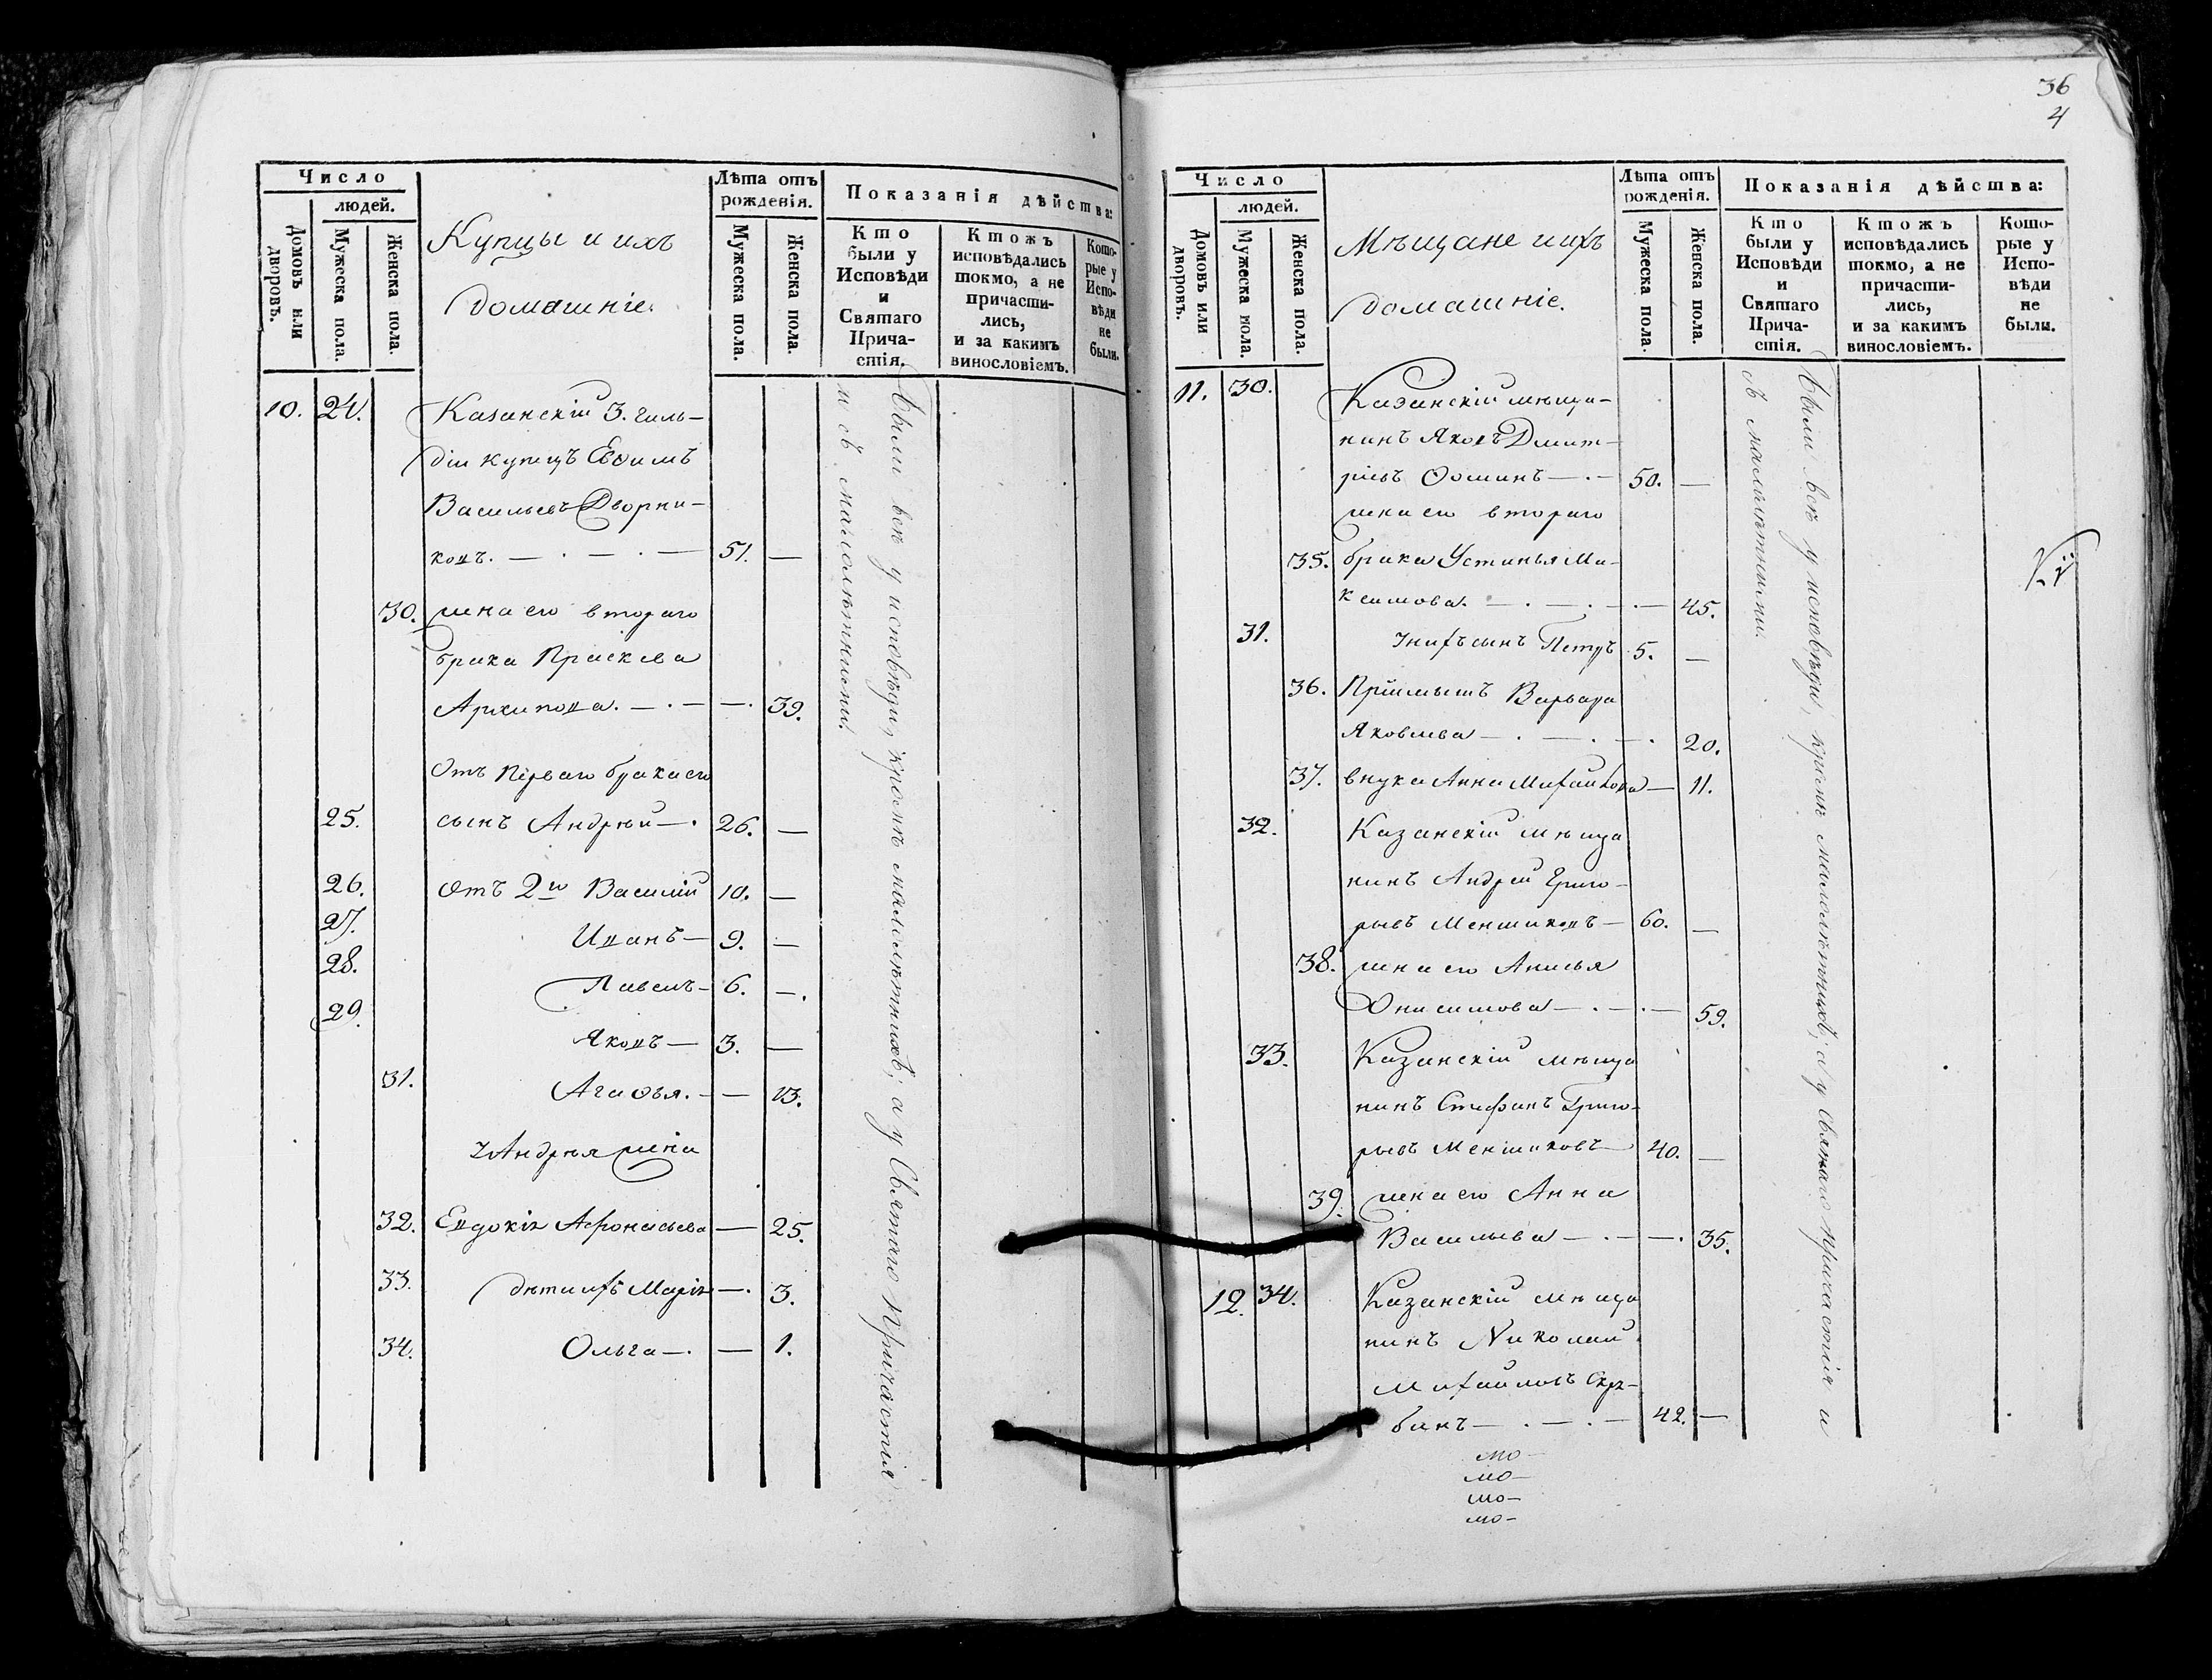 Число
людей.
Домовъ или дворовъ.
Мужеска пола.
Женска пола.
Купцы и ихъ
домашніе.
Лѣта отъ рожденія.
Мужеска пола.
Женска пола.
Показанія дѣйства:
Кто были у Исповѣди и Святаго Причастія.
Ктожъ исповѣдались токмо, а не причастились, и за какимъ винословіемъ.
Которые у Исповѣди не были.
10. 24. Казанскій 3. гиль-
діи купецъ Евѳимъ
Васильевъ Дворни-
ковъ. — . — . — 51. —
30. жена его втораго
брака Праскева
Архипова. — . — — . 39.
Отъ перваго брака его
25. сынъ Андрѣй — . 26. —
26. Отъ 2го Василій 10. —
27. Иванъ — 9. —
28. Павелъ — 6. — .
29. Яковъ — 3. —
31. Агаѳья. — — 13.
Андрѣя жена
32. Евдокія Афонасьева — 25.
33. дѣти ихъ Марія — . 3.
34. Ольга — . — 1.
Были всѣ у исповѣди, кромѣ малолѣтнихъ; а у Святаго Причастія
и съ малолѣтними.
36
4
Число
людей.
Домовъ или дворовъ.
Мужеска пола.
Женска пола.
Мѣщане и ихъ
домашніе.
Лѣта отъ рожденія.
Мужеска пола.
Женска пола.
Показанія дѣйства:
Кто были у Исповѣди и Святаго Причастія.
Ктожъ исповѣдались токмо, а не причастились, и за какимъ винословіемъ.
Которые у Исповѣди не были.
11. 30. Казанскій мѣща-
нинъ Яковъ Дмит-
ріевъ Ѳоминъ — . — 50. —
жена его втораго
35. брака Устинья Ма-
ксимова. — . — . — . — 45.
31. у нихъ сынъ Петръ 5. —
36. Пріимышъ Варвара
Яковлева — . — . — . 20.
37. внука Анна Михайлова — 11.
32. Казанскій мѣща
нинъ Андрей Григо-
рьевъ Меншиковъ — 60. —
38. жена его Анисья
Онисимова — . — . — 59.
33. Казанскій мѣща
нинъ Стефанъ Григо-
рьевъ Меншиковъ — 40. —
39. жена его Анна
Васильева — . — — . 35.
12. 34. Казанскій мѣща
нинъ Николай
Михайловъ Скря-
бинъ — . — . — 42. —
Были всѣ у исповѣди, кромѣ малолѣтнихъ; а у Святаго Причастія и
съ малолѣтними.
мо —
мо —
мо —
мо —